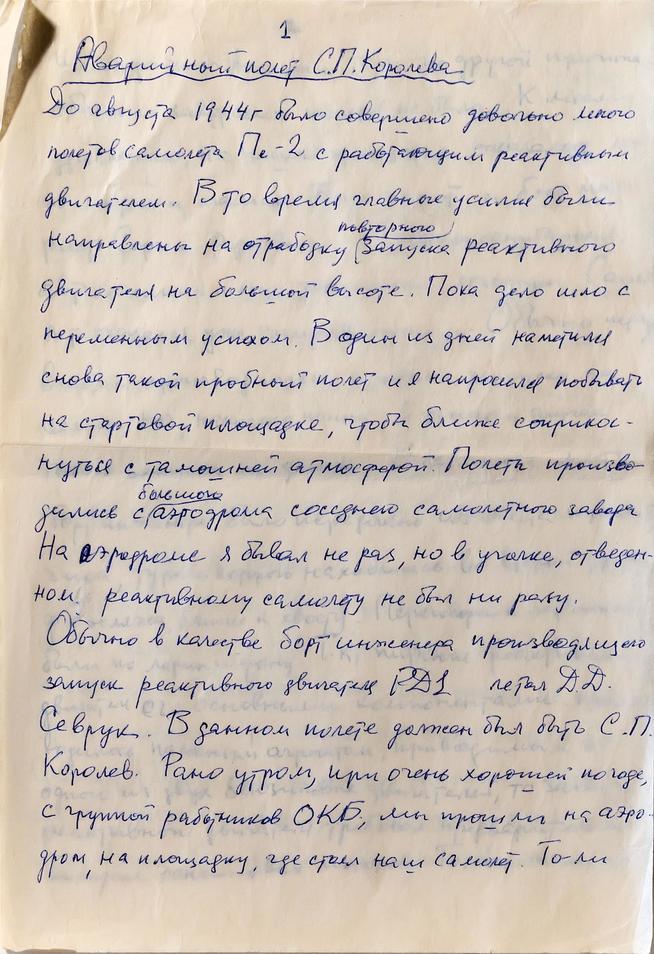 1
Аварийный полет С.П. Королева
До августа 1944г было совершено довольно много
полетов самолета Пе-2 с работающим реактивным
двигателем. В то время главные усилия были
повторного
направлены на отработку запуска реактивного
двигателя на большой высоте. Пока дело шло с
переменным успехом. В один из дней наметился
снова такой пробный полет и я напросился побывать
на стартовой площадке, чтобы ближе соприкос-
нуться с тамошней атмосферой. Полеты произво-
большого
дились с аэродрома соседнего самолетного завода
На аэродроме я бывал не раз, но в уголке, отведен-
ном реактивному самолету не был ни разу.
Обычно в качестве борт инженера производящего
запуск реактивного двигателя РД1 летал Д.Д.
Севрук. В данном полете должен был быть С.П.
Королев. Рано утром, при очень хорошей погоде,
с группой работников ОКБ, мы прошли на аэро-
дром, на площадку, где стоял наш самолет. То-ли